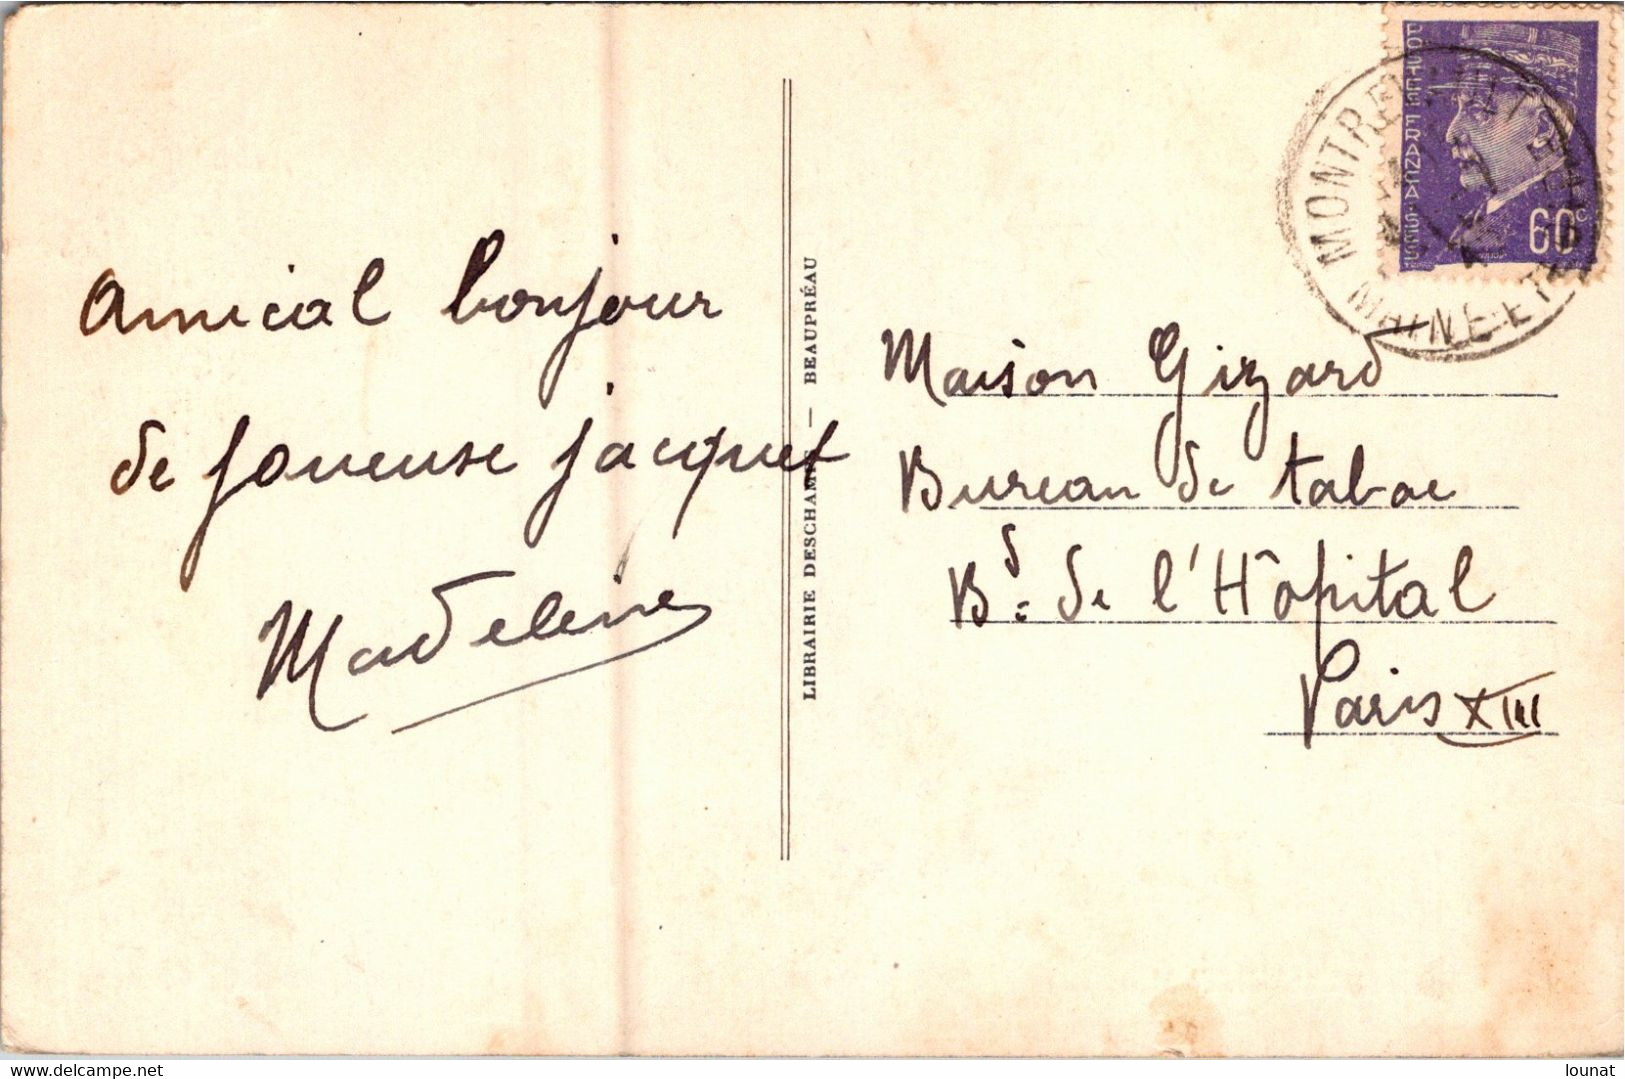 POSTES FRANÇAISES
60c
MAINE-ET-
Amical bonjour
de joueuse jacquet
Madeleine
LIBRAIRIE DESCHAMPS — BEAUPRÉAU
Maison Gizard
Bureau de tabac
Bd: de l'Hôpital
Paris XIII
www.delcampe.net
lounat